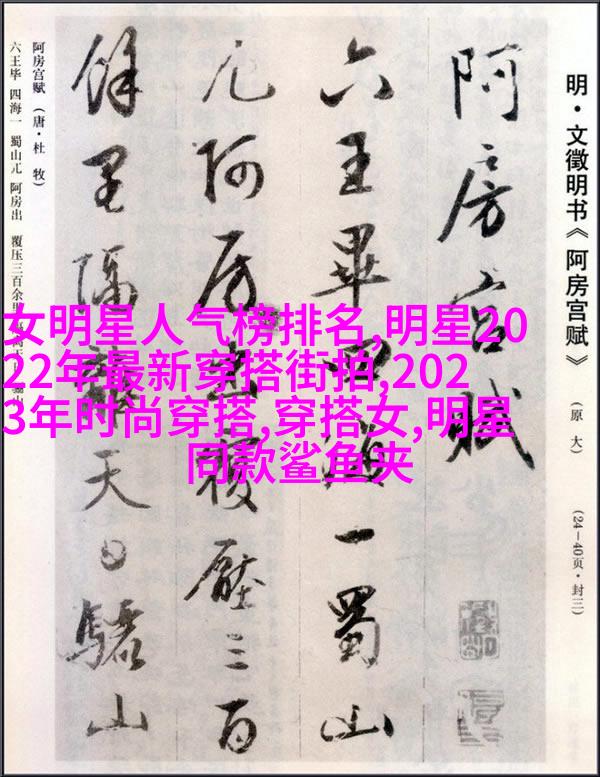 明·文徵明书《阿房宫赋》
(原大)
(24—40页·封三)
阿房宫赋
六王畢四海一蜀山
兀阿房出覆壓三百
餘里隔離天日驪山
阿房宫赋(唐·杜牧)
六王毕 四海一 蜀山兀 阿房出 覆压三百余里
女明星人气榜排名,明星20
22年最新穿搭街拍,202
3年时尚穿搭,穿搭女,明星
同款鲨鱼夹